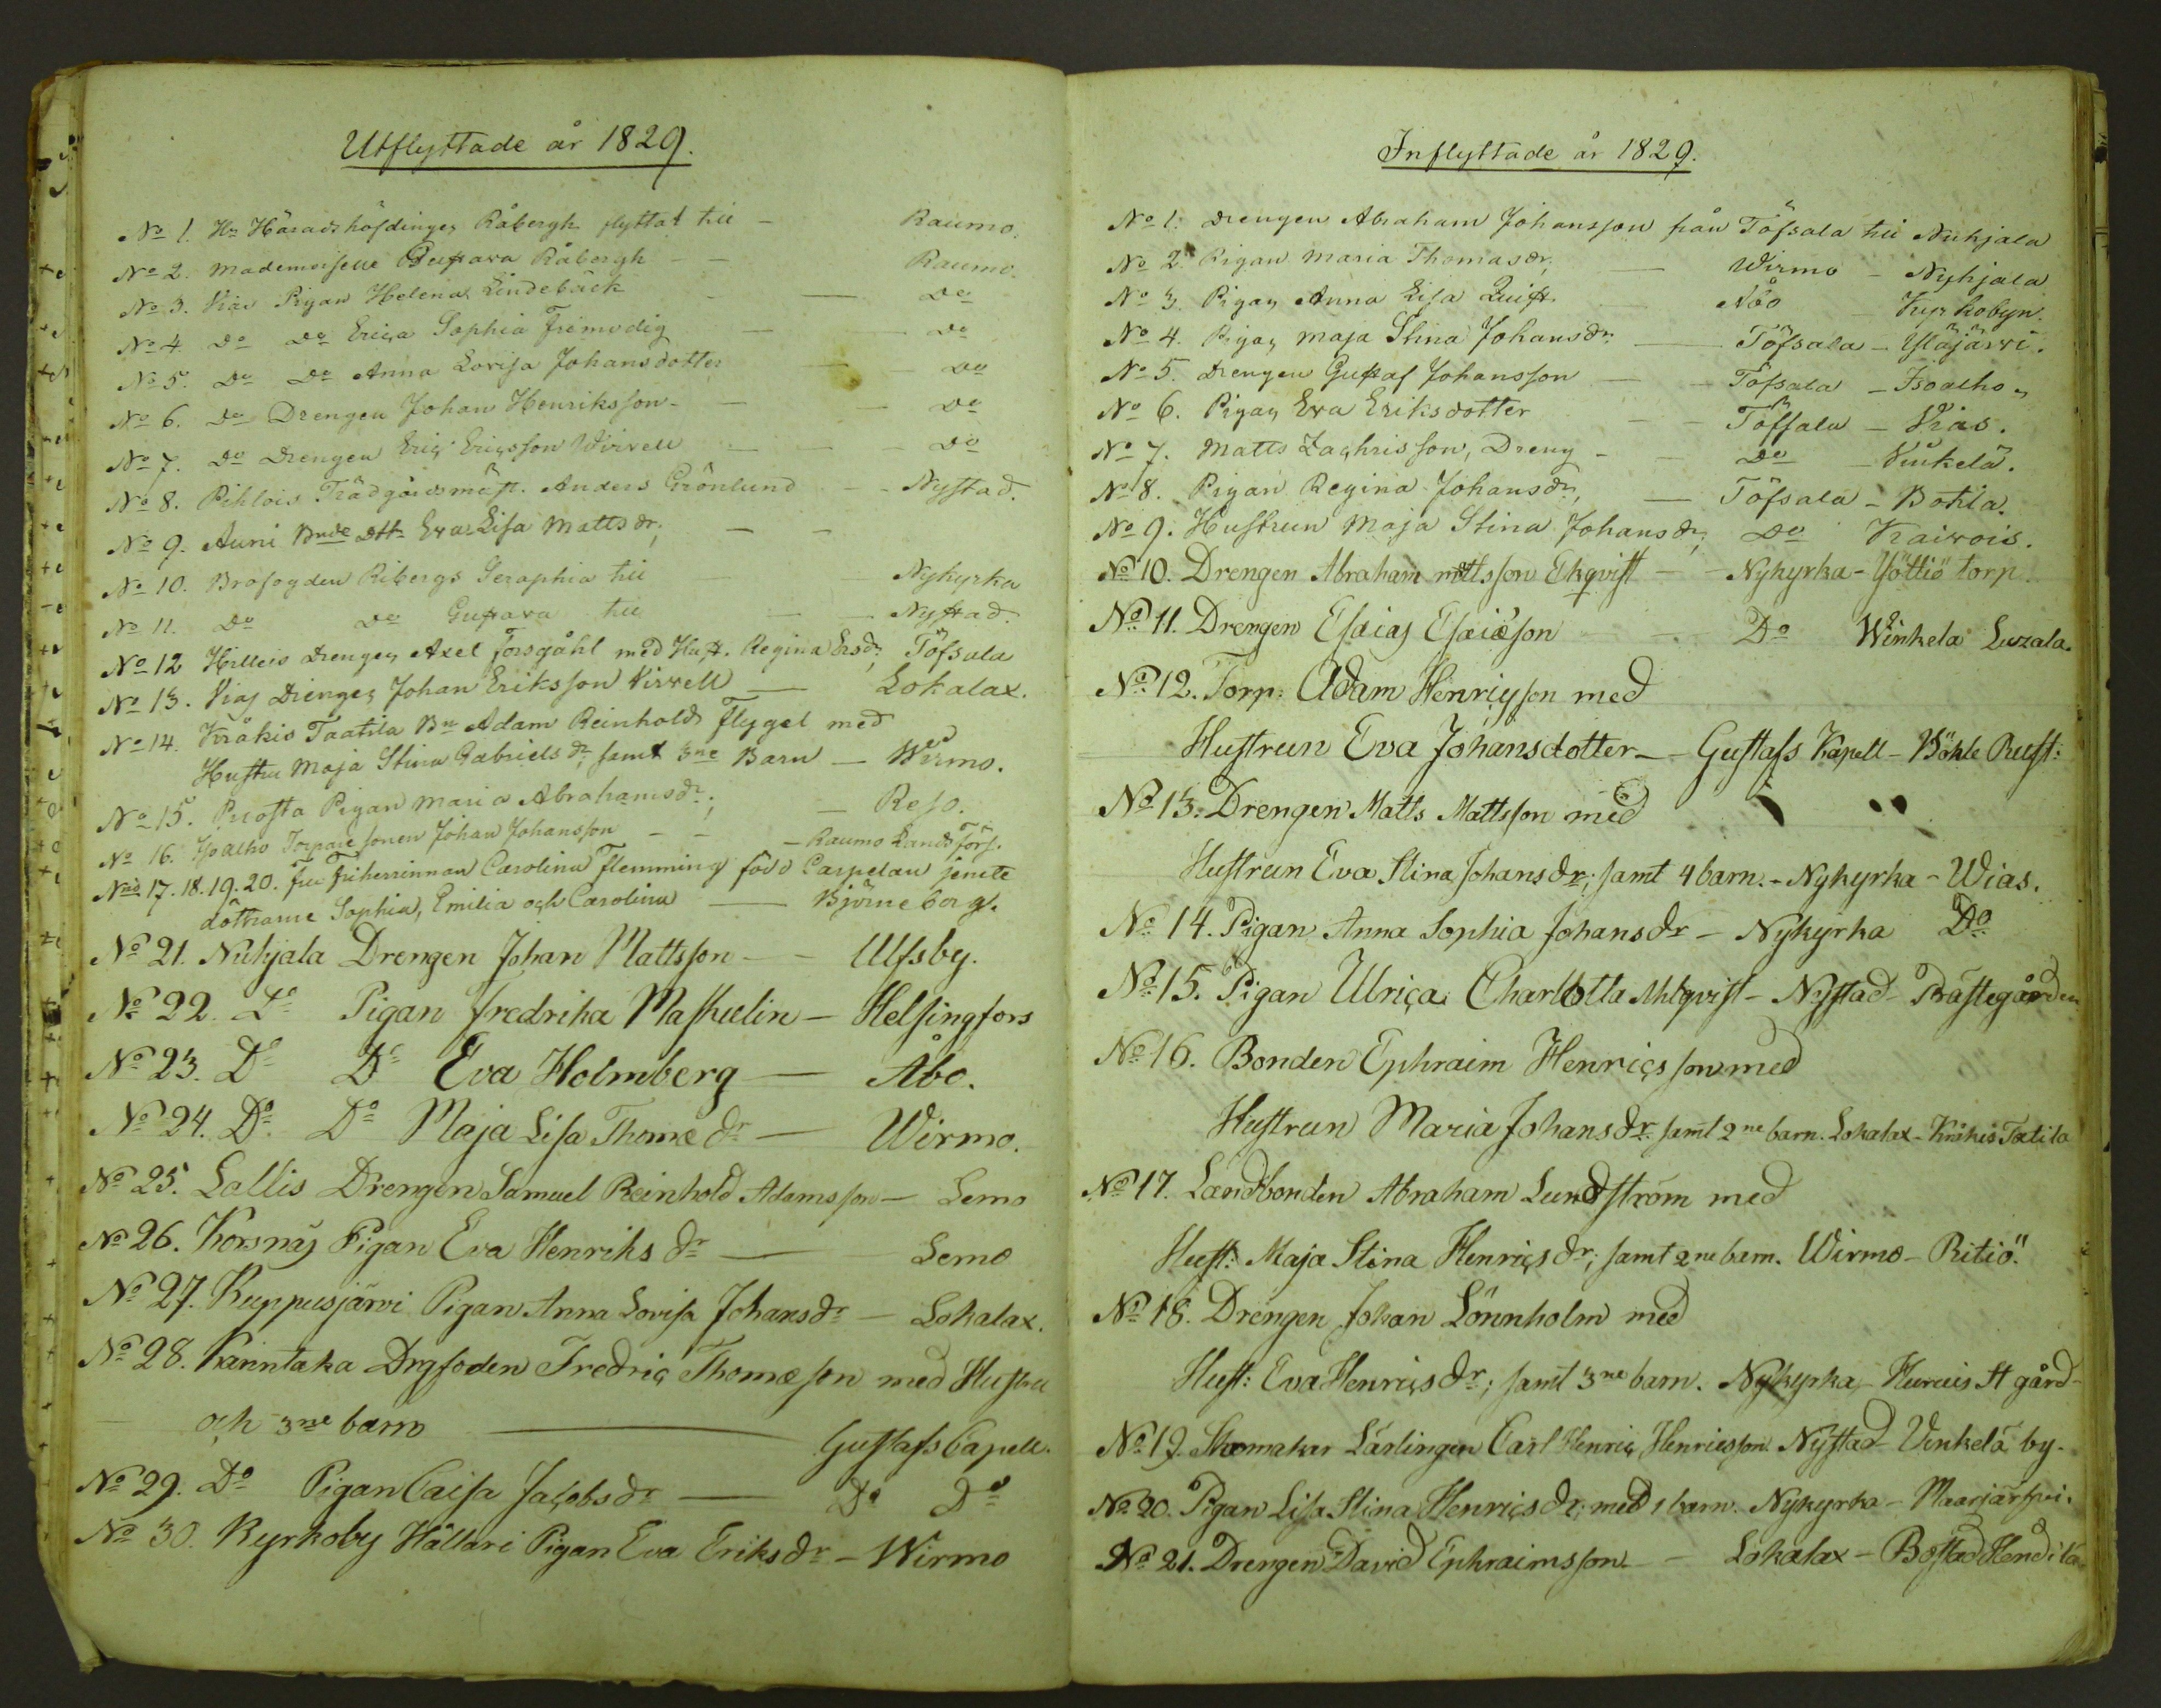 Utflyttade år 1829.
No 1. Hr Häradshöfdingen Råbergh flyttat till – Raumo.
No 2. Mademoiselle Gustava Råbergh – – Raumo.
No 3. Vias Pigan Helena Lindebäck – – Do
No 4. Do Do Erica Sophia Frimodig – – Do
No 5. Do Do Anna Lovisa Johansdotter – – Do
No 6. Do Drengen Johan Henriksson – – Do
No 7. Do Drengen Eric Ericsson Wirvell – – Do
No 8. Pihlois Trädgårdsmäst. Anders Grönlund – – Nystad.
No 9. Auni Bnde Dtt. Eva Lisa Mattsdr; – –
No 10. Brofogden Ribergs Seraphia till – Nykyrka
No 11. Do Do Gustava till – – Nystad.
No 12 Hilleis Drengen Axel Forsgåhl med Hust. Regina Ersdr; Töfsala
No 13. Vias Drengen Johan Eriksson Virvell – Lokalax.
No 14. Kråkis Taatila Bn Adam Reinhold Flygel med
Hustru Maja Stina Gabrielsdr; samt 3ne Barn – Wirmo.
No 15. Puosta Pigan Maria Abrahamsdr; – Reso.
No 16. Isoalho Torpare sonen Johan Johansson – – – Raumo Lands Förs.
No 17. 18. 19. 20. Fru Friherrinnan Carolina Flemming född Carpelan jemte
döttrarne Sophia, Emilia och Carolina – Björneborg.
No 21. Nuhjala Drengen Johan Mattsson – – Ulfsby.
No 22. Do Pigan Fredrika Maskulin – Helsingfors
No 23. Do Do Eva Holmberg – Åbo.
No 24. Do Do Maja Lisa Thomædr – Wirmo.
No 25. Lallis Drengen Samuel Reinhold Adamsson – Lemo
No 26. Korsnäs Pigan Eva Henriksdr – Lemo
No 27. Kuppusjärvi Pigan Anna Lovisa Johansdr – Lokalax.
No 28. Kanntaka Drgfoden Fredric Thomæson med Hustru
och 3ne barn – Gustafs Capell.
No 29. Do Pigan Caisa Jacobsdr – Do Do
No 30. Kyrkoby Hällari Pigan Eva Eriksdr – Wirmo
Inflyttade år 1829.
No 1. Drengen Abraham Johansson från Töfsala till Nuhjala
No 2. Pigan Maria Thomasdr; – Wirmo – Nyhjala
No 3. Pigan Anna Lisa Quist. – Nåo Kyrkobyn.
No 4. Pigan Maja Stina Johansdr – Töfsala – Yläjärvi.
No 5. Drengen Gustaf Johansson – – Töfsala – Isoalho
No 6. Pigan Eva Eriksdotter – – Töffsala – Vias.
No 7. Matts Zachrisson, Dreng – – Do – Vinkelä.
No 8. Pigan Regina Johansdr; – Töfsala – Botila.
No 9. Hustrun Maja Stina Johansdr; Do Kairois.
No 10. Drengen Abraham Mattsson Ekqvist – – Nykyrka – Yöttiö torp.
No 11. Drengen Esaias Esaiæson Do Winkelä Luzala.
No 12. Torp: Adam Henricsson med
Hustrun Eva Johansdotter – Gustafs Kapell – Böhle Rust:
No 13. Drengen Matts Mattsson med
Hustrun Eva Stina Johansdr; samt 4 barn. – Nykyrka – Wias.
No 14. Pigan Anna Sophia Johansdr – Nykyrka Do
No 15. Pigan Ulrica Charlotta Ahlqvist – Nystad – Prästegården
No 16. Bonden Ephraim Henricsson med
Hustrun Maria Johansdr. samt 2ne barn. Lokalax – Kråkis Tatila
No 17. Landbonden Abraham Lundström med
Hust: Maja Stina Henricsdr; samt 2ne barn. Wirmo – Ritiö.
No 18. Drengen Johan Lönnholm med
Hust: Eva Henricsdr; samt 3ne barn. Nykyrka – Huruis St gård
No 19. Skomakar Lärlingen Carl Henric Henricsson. Nystad – Vinkelä by.
No 20. Pigan Lisa Stina Henricsdr; med 1 barn. Nykyrka – Maarjärfvi.
No 21. Drengen David Ephraimsson – – Lokalax – Bostad Hendilä